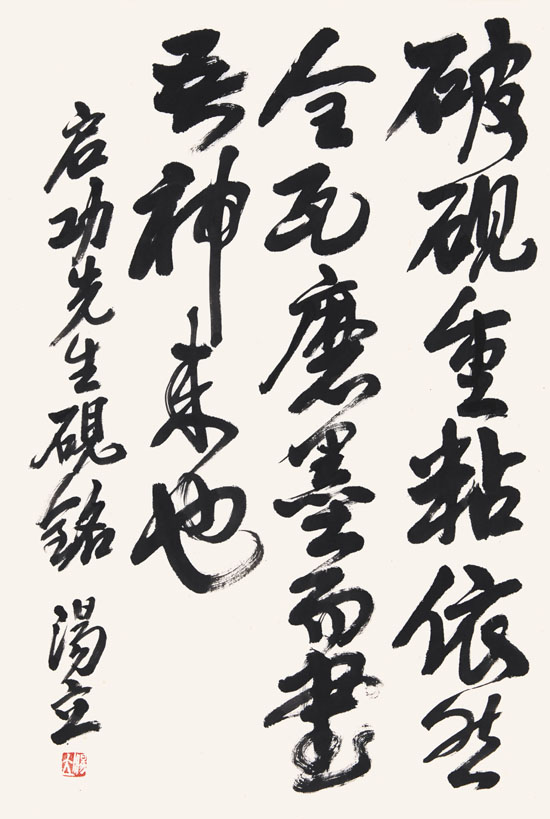 破砚重粘依然
全瓦磨墨而书
吾神来也
启功先生砚铭 汤立